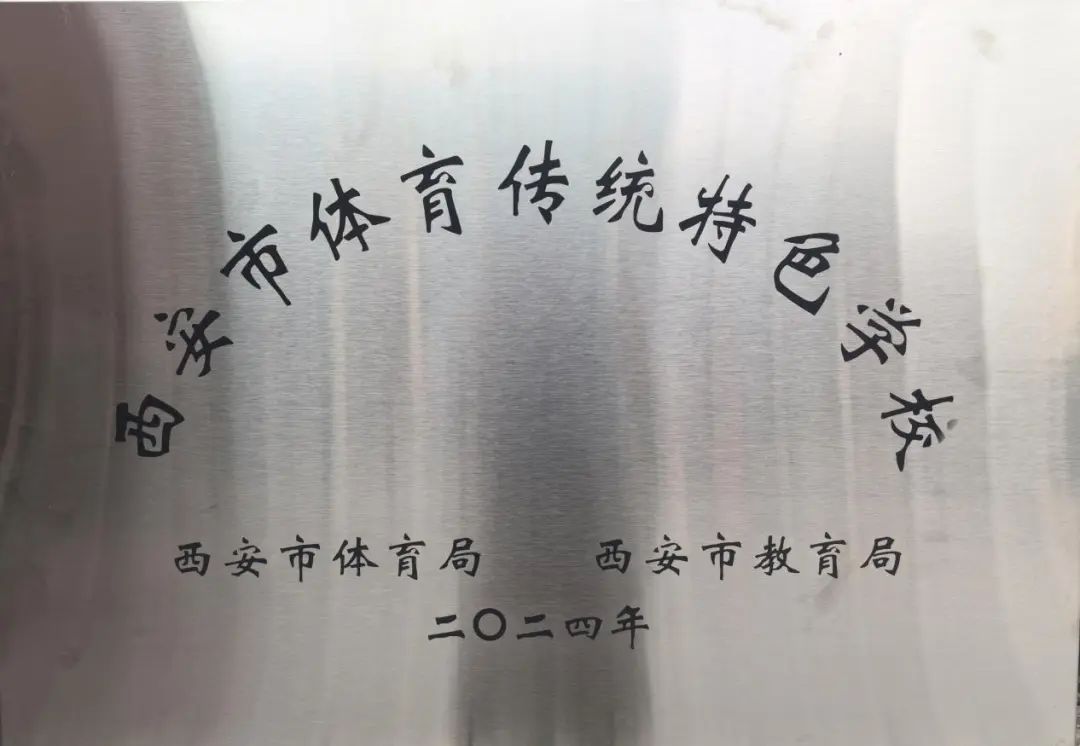 西安市体育传统特色学校
西安市体育局 西安市教育局
二〇二四年